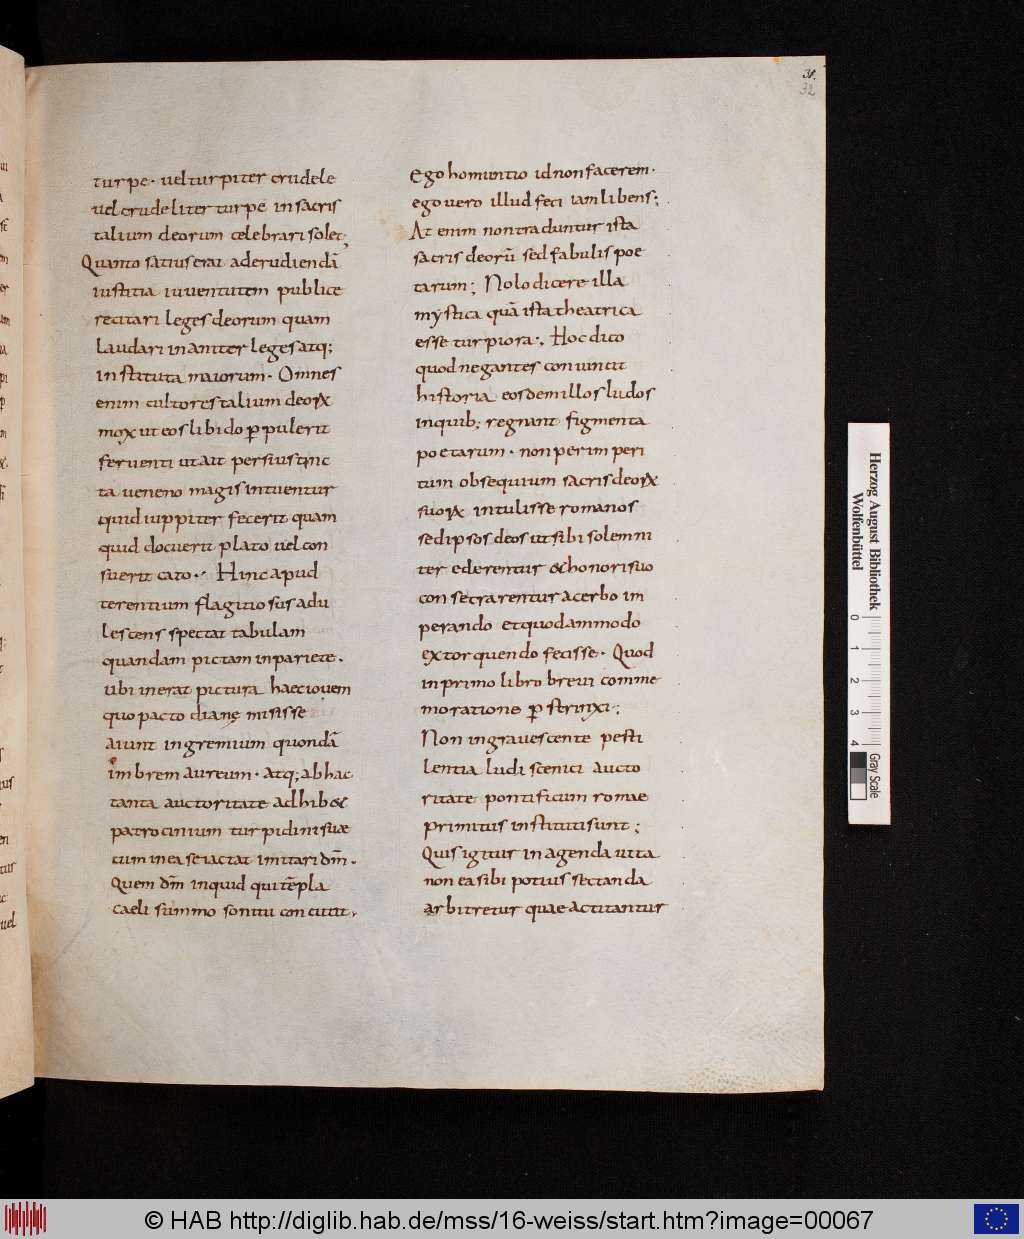 31.
32
turpe· uel turpiter crudele
uel crudeliter turpe in sacris
talium deorum celebrari solet;
Quanto satius erat ad erudiendā
iustitia iuuentutem publice
recitari leges deorum quam
laudari inaniter leges atq;
instituta maiorum· Omnes
enim cultores talium deorꝝ
mox ut eos libido ꝑpulerit
feruenti ut ait persius tinc
ta ueneno magis intuentur
quid iuppiter fecerit quam
quid docuerit plato uel con
suerit cato· Hinc apud
terentium flagitiosus adu
lescens spectat tabulam
quandam pictam in pariete·
ubi inerat pictura haec iouem
quo pacto dianę misisse
aiunt in gremium quondā
imbrem aureum· atq; ab hac
tanta auctoritate adhib&
patrocinium turpidini suae
cum in ea se iactat imitari dm̄·
Quem dm̄ inquid qui tēpla
caeli summo sonitu concutit·
Ego homuntio id non facerem·
ego uero illud feci iam libens;
At enim non traduntur ista
sacris deorū sed fabulis poe
tarum; Nolo dicere illa
mystica quā ista theatrica
esse turpiora·, Hoc dico
quod negantes conuincit
historia eosdem illos ludos
in quib; regnant figmenta
poetarum· non per imperi
tum obsequium sacris deorꝝ
suorꝝ intulisse romanos
sed ipsos deos ut sibi solemni
ter ederentur & honori suo
consecrarentur acerbo im
perando et quodammodo
extorquendo fecisse· Quod
in primo libro breui comme
moratione ꝑstrinxi;
Non ingrauescente pesti
lentia ludi scenici aucto
ritate pontificum romae
primitus instituti sunt;
Quis igitur in agenda uita
non ea sibi potius sectanda
arbitretur quae actitantur
Herzog August Bibliothek
Wolfenbüttel
0 1 2 3 4
Gray Scale
© HAB http://diglib.hab.de/mss/16-weiss/start.htm?image=00067